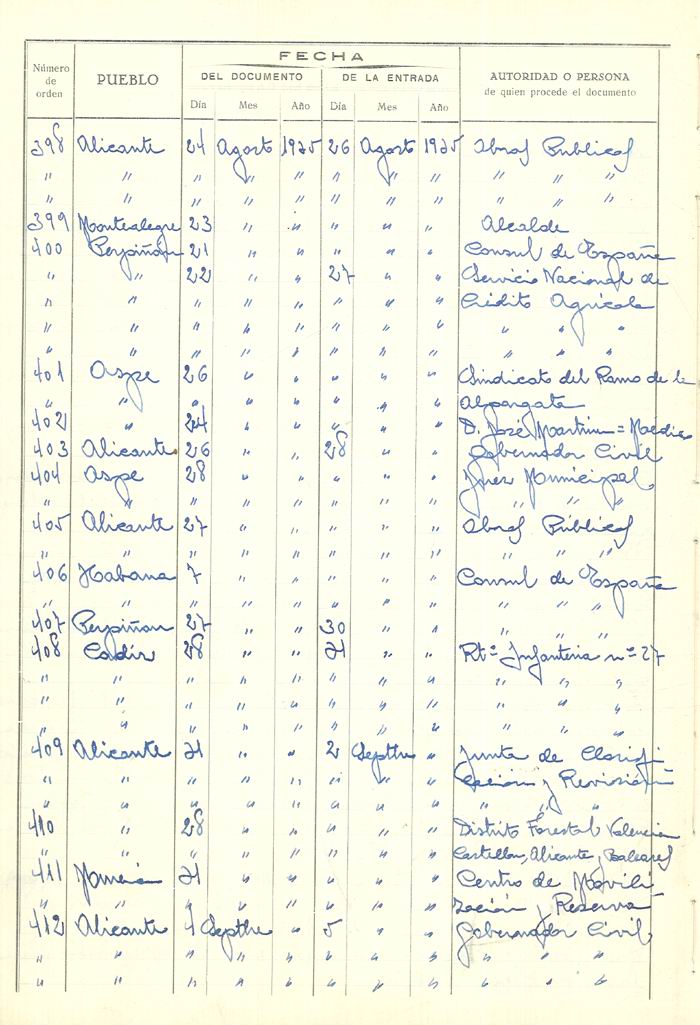 FECHA
Número de orden PUEBLO DEL DOCUMENTO DE LA ENTRADA AUTORIDAD O PERSONA de quien procede el documento
Día Mes Año Día Mes Año
398 Alicante 24 Agosto 1935 26 Agosto 1935 Obras Públicas
" " " " " " " " " " "
" " " " " " " " " " "
399 Montealegre 23 " " " " " Alcalde
400 Perpiñán 21 " " " " " Consul de España
" " 22 " " 27 " " Servicio Nacional de
" " " " " " " " Crédito Agrícola
" " " " " " " " " " "
" " " " " " " " " " "
401 Aspe 26 " " " " " Sindicato del Ramo de la
" " " " " " " " Alpargata
402 " 24 " " " " " D. José Martínez = Médico
403 Alicante 26 " " 28 " " Gobernador Civil
404 Aspe 28 " " " " " Juez Municipal
" " " " " " " " " " "
405 Alicante 27 " " " " " Obras Públicas
" " " " " " " " " " "
406 Habana 7 " " " " " Consul de España
" " " " " " " " " " "
407 Perpiñan 27 " " 30 " " " " "
408 Cadiz 28 " " 31 " " Rtº Infanteria nº 27
" " " " " " " " " " "
" " " " " " " " " " "
" " " " " " " " " " "
409 Alicante 31 " " 2 Septbre " Junta de Clasifi
" " " " " " " " cación y Revisión
" " " " " " " " " " "
410 " 28 " " " " " Distrito Forestal Valencia
" " " " " " " " Castellon, Alicante, Baleares
411 31 " " " " " Centro de Movili
" " " " " " " " zación y Reserva
412 Alicante 4 Septbre " 5 " " Gobernador Civil
" " " " " " " " " " "
" " " " " " " " " " "